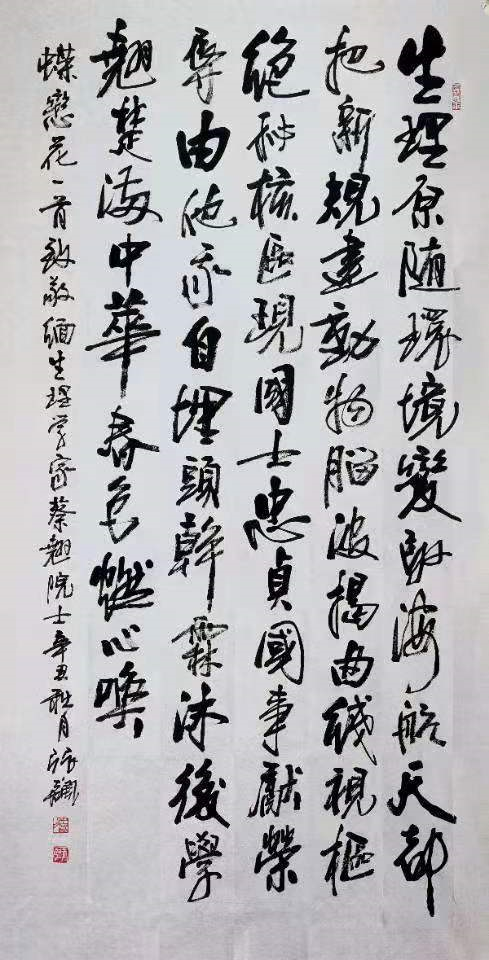 生理原随環境變海航天都
把新規建動物腦波揭曲綫視樞
絕秘核區現國士忠貞國事獻榮
辱由他我自埋頭幹霖沐後學
翹楚中華春色燃心喚
蝶戀花一首致敬緬生理学家蔡翹院士辛丑月